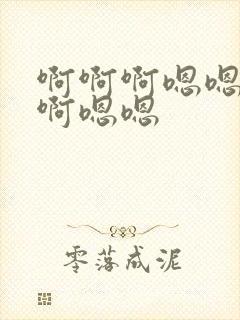 啊啊啊嗯嗯
啊嗯嗯
零落成泥